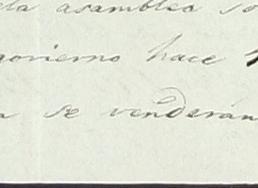 la asamblea so
govierno hace
se venderán